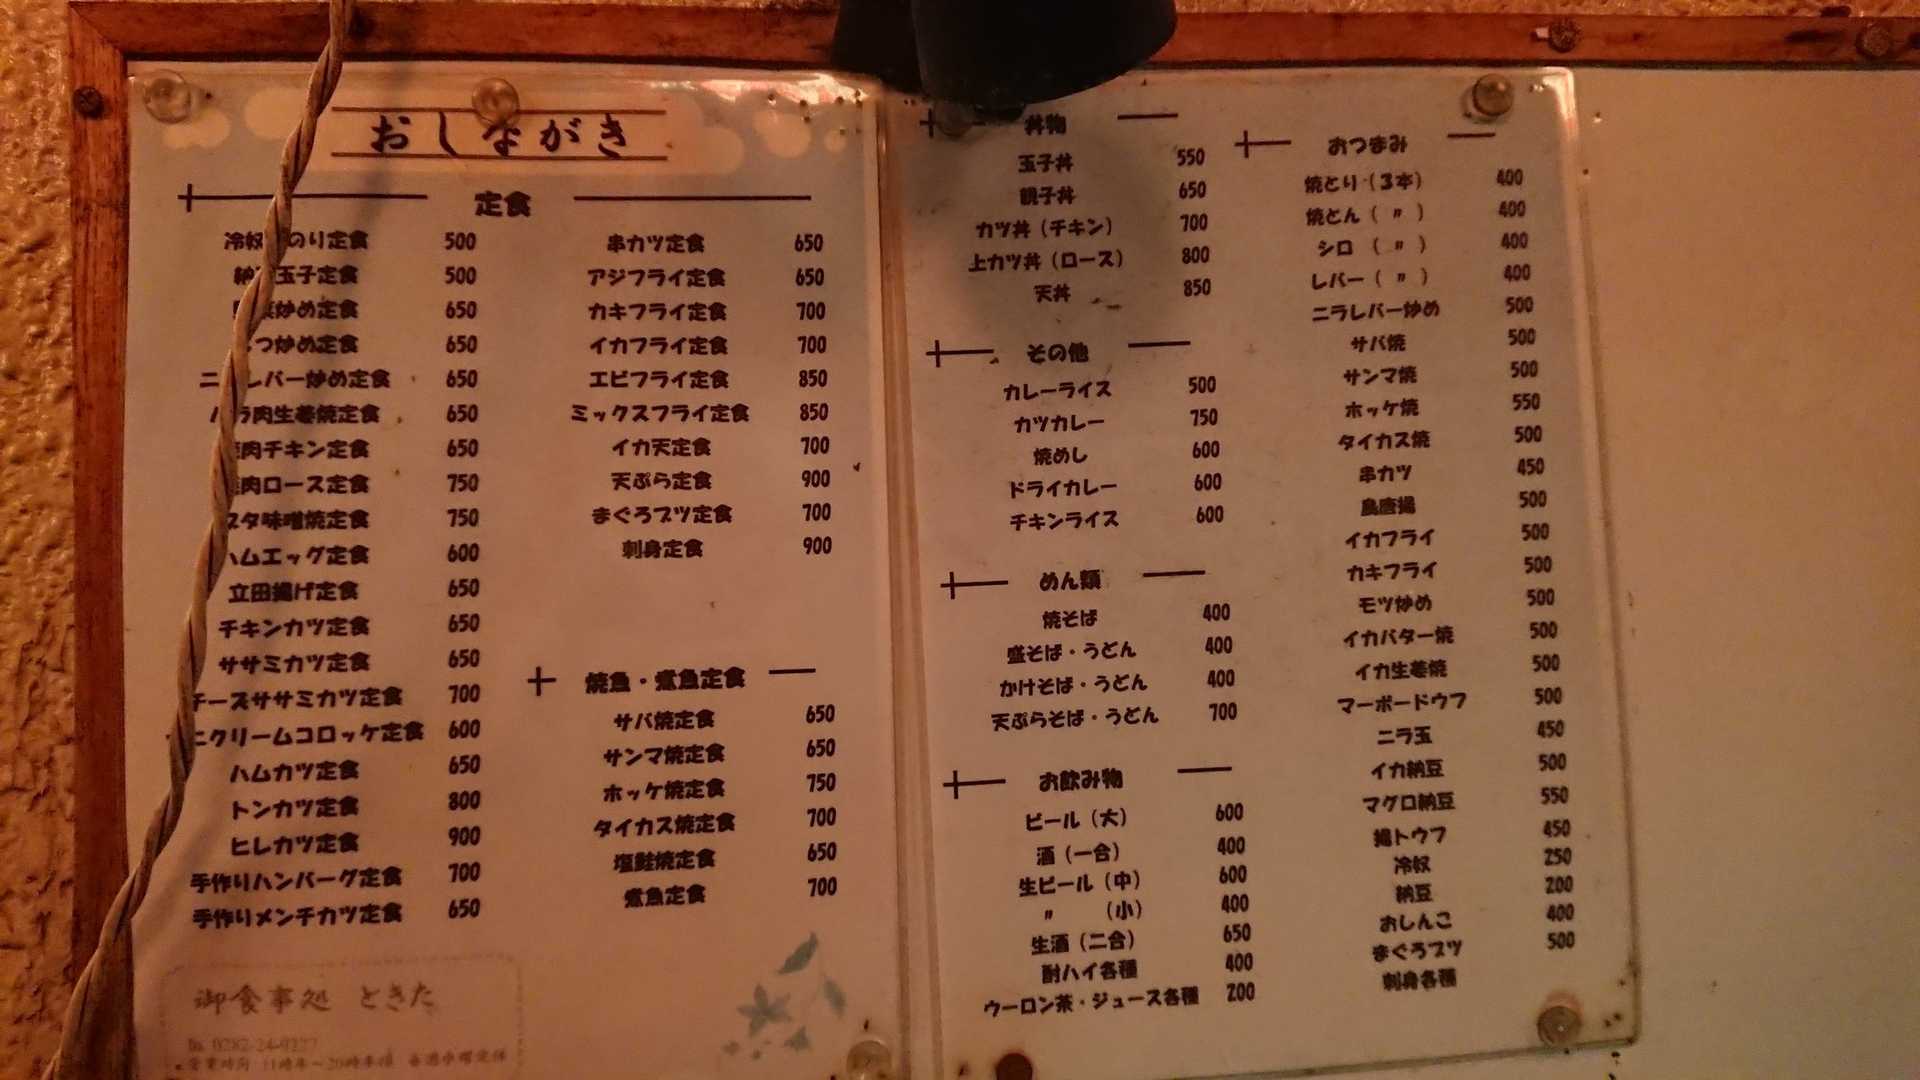 おしながき
定食
冷奴 のり定食 500
納 玉子定食 500
炒め定食 650
つ炒め定食 650
ニ レバー炒め定食 650
バラ肉生姜焼定食 650
肉チキン定食 650
肉ロース定食 750
ブタ味噌焼定食 750
ハムエッグ定食 600
立田揚げ定食 650
チキンカツ定食 650
ササミカツ定食 650
チーズササミカツ定食 700
ニクリームコロッケ定食 600
ハムカツ定食 650
トンカツ定食 800
ヒレカツ定食 900
手作りハンバーグ定食 700
手作りメンチカツ定食 650
串カツ定食 650
アジフライ定食 650
カキフライ定食 700
イカフライ定食 700
エビフライ定食 850
ミックスフライ定食 850
イカ天定食 700
天ぷら定食 900
まぐろブツ定食 700
刺身定食 900
焼魚・煮魚定食
サバ焼定食 650
サンマ焼定食 650
ホッケ焼定食 750
タイカス焼定食 700
塩鮭焼定食 650
煮魚定食 700
御食事処 ときた
0282-24-0227
営業時間 11時半〜20時半頃 毎週水曜定休
丼物
玉子丼 550
親子丼 650
カツ丼（チキン） 700
上カツ丼（ロース） 800
天丼 850
その他
カレーライス 500
カツカレー 750
焼めし 600
ドライカレー 600
チキンライス 600
めん類
焼そば 400
盛そば・うどん 400
かけそば・うどん 400
天ぷらそば・うどん 700
お飲み物
ビール（大） 600
酒（一合） 400
生ビール（中） 600
〃 （小） 400
生酒（二合） 650
酎ハイ各種 400
ウーロン茶・ジュース各種 200
おつまみ
焼とり（3本） 400
焼とん（ 〃 ） 400
シロ （ 〃 ） 400
レバー（ 〃 ） 400
ニラレバー炒め 500
サバ焼 500
サンマ焼 500
ホッケ焼 550
タイカス焼 500
串カツ 450
鳥唐揚 500
イカフライ 500
カキフライ 500
モツ炒め 500
イカバター焼 500
イカ生姜焼 500
マーボードウフ 500
ニラ玉 450
イカ納豆 500
マグロ納豆 550
揚トウフ 450
冷奴 250
納豆 200
おしんこ 400
まぐろブツ 500
刺身各種